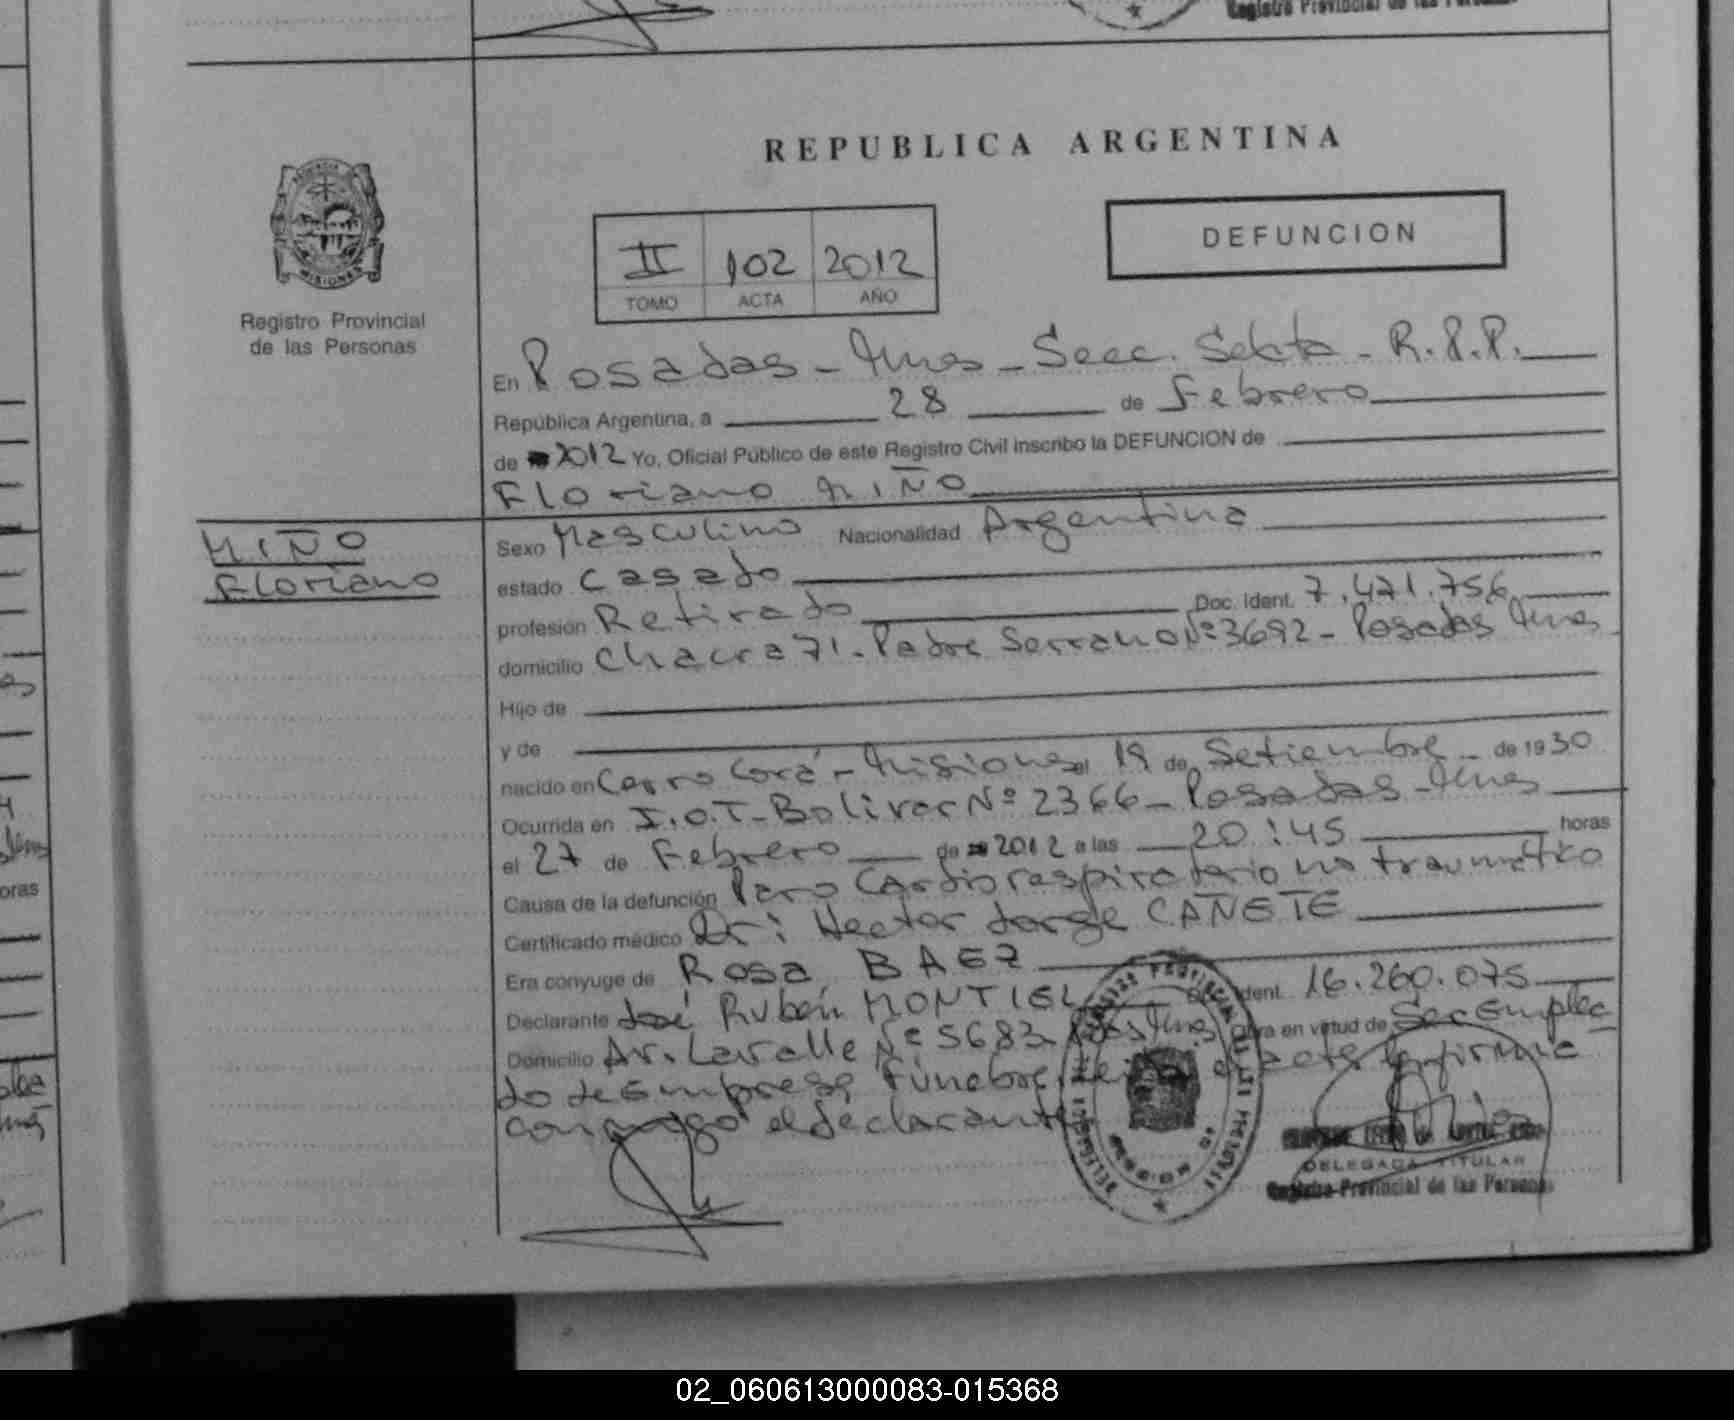 Registro Provincial de las Personas
REPUBLICA ARGENTINA
MISIONES
Registro Provincial
de las Personas
II 102 2012
TOMO ACTA AÑO
DEFUNCION
En Posadas - Mnes - Secc. Sexta - R.P.P.
República Argentina, a 28 de Febrero
de 2012 Yo, Oficial Público de este Registro Civil inscribo la DEFUNCION de
Floriano MIÑO
MIÑO
Floriano
Sexo Masculino Nacionalidad Argentina
estado Casado
profesión Retirado Doc. Ident. 7.471.756
domicilio Chacra 71 - Padre Serrano Nº 3692 - Posadas Mnes
Hijo de
y de
nacido en Cerro Corá - Misiones el 19 de Setiembre - de 1930
Ocurrida en I.O.T - Bolivar Nº 2366 - Posadas - Mnes
el 27 de Febrero de 2012 a las 20:45 horas
Causa de la defunción Paro Cardiorespiratorio no traumático
Certificado médico Dr: Hector Jorge CAÑETE
Era cónyuge de Rosa BAEZ
Declarante José Rubén MONTIEL Doc. Ident. 16.260.075
Domicilio Av. Lavalle Nº 5683 Mnes Obra en virtud de Ser Emplea
do de Empresa Fúnebre el acta la firma
conmigo el declarante
DELEGADA TITULAR
Registro Provincial de las Personas
02_060613000083-015368